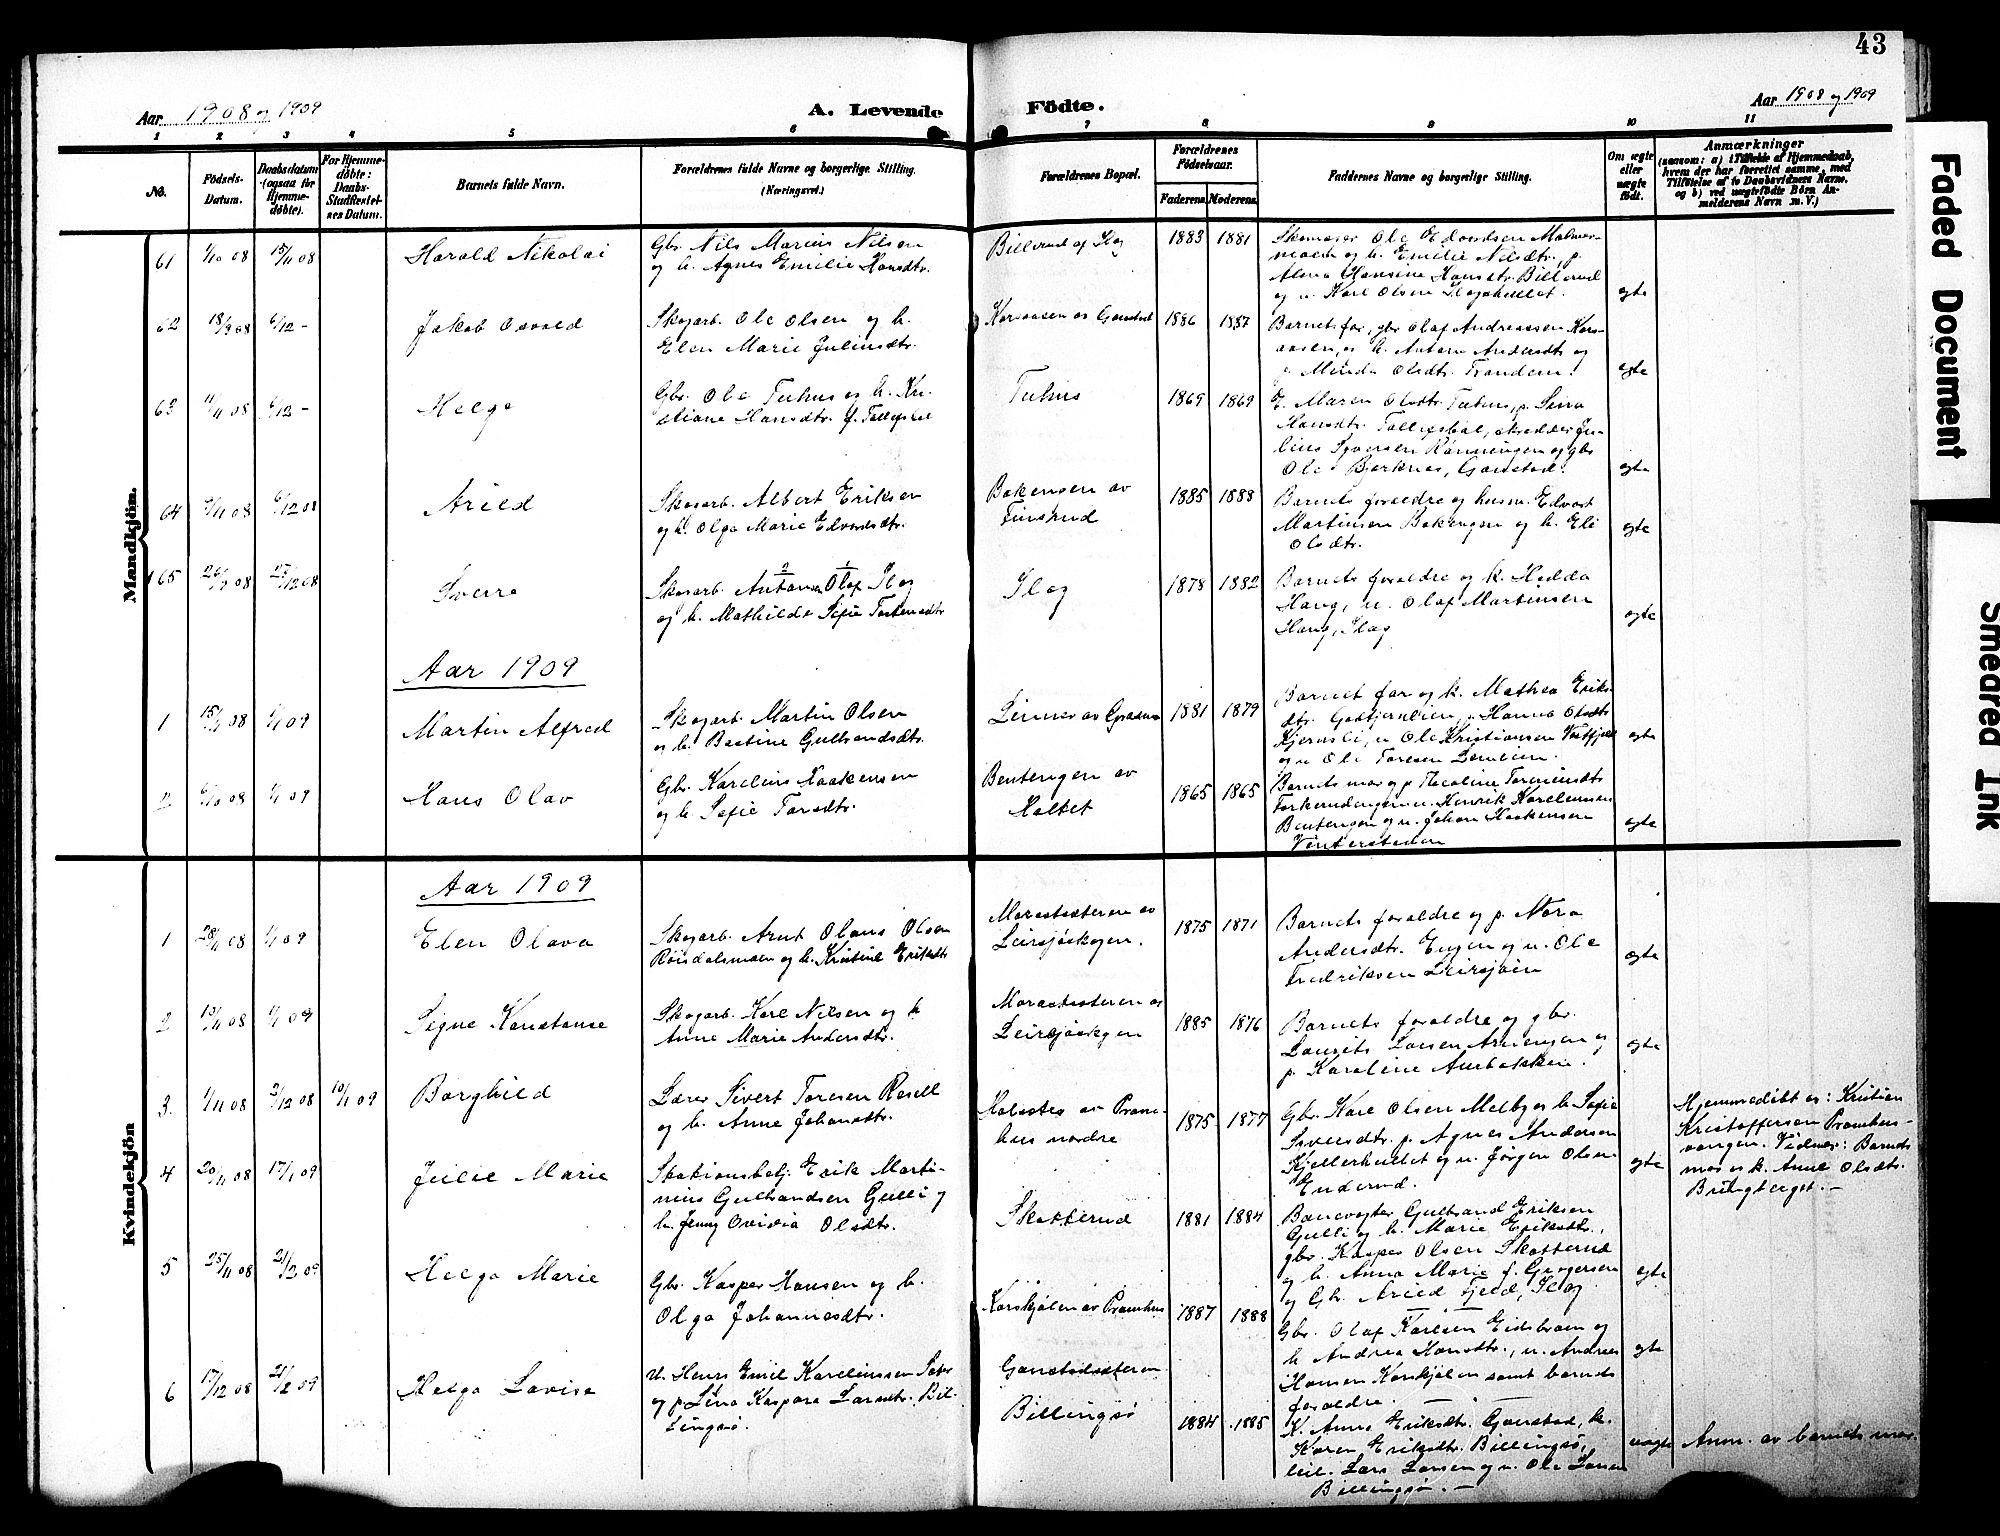 43
Aar 1908 og 1909
A. Levende Födte.
Aar 1908 og 1909
1 2 3 4 5 6 7 8 9 10 11
No.
Födsels-Datum.
Daabsdatum (ogsaa for Hjemme-døbte).
For Hjemme-døbte: Daabs-Stadfæstel-ses Datum.
Barnets fulde Navn.
Forældrenes fulde Navne og borgerlige Stilling. (Næringsvei.)
Forældrenes Bopæl.
Forældrenes Födselsaar.
Faderens. Moderens.
Faddernes Navne og borgerlige Stilling.
Om ægte eller uægte født.
Anmærkninger
(saasom: a) i Tilfælde af Hjemmedaab,
hvem der har forrettet samme, med
Tilföielse af to Daabsvidners Navne.
og b) ved uægtefödte Börn An-
melderens Navn m. V.)
Mandkjön.
61 1/10 08 15/11 08 Harald Nikolai
Gbr. Nils Marius Nilsen
og h. Agnes Emilie Hansdtr.
Billerud af Slag 1883 1881
Skomager Ole Edvardsen Malmer-
moen og h. Emilie Nilsdtr., p.
Alma Hansine Hansdtr. Billerud
og u. Karl Olsen Slagshullet. egte
62 18/9 08 6/12 - Jakob Osvald
Skogarb. Ole Olsen og h.
Elen Marie Juliusdtr.
Korsaasen av Gaustad 1886 1887
Barnets far, gbr. Olaf Andreassen Kors-
aasen, og h. Antora Andersdtr og
p. Minda Olsdtr. Tranden. egte
63 11/11 08 6/12 - Helge
Gbr. Ole Tuhus og h. Kri-
stiane Hansdtr. f. Tallofsbøl
Tuhus 1869 1869
E. Maren Olsdtr. Tuhus, p. Lina
Hansdtr. Tallofsbøl, skrædder Ju-
lius Syversen Rønningen og gbr
Ole Bjerknes, Gaustad. egte
64 9/11 08 6/12 08 Arild
Skogarb. Albert Eriksen
og h. Olga Marie Edvardsdtr.
Bakengen av
Finsrud 1885 1888
Barnets forældre og husm. Edvart
Martinsen Bakengen og h. Eli
Olsdtr. egte
65 26/9 08 27/12 08 Sverre
Skogarb. Anton Olaf Slag
og h. Mathilde Sofie Torkensdtr
Slag 1878 1882
Barnets forældre og k. Hedda
Haug, u. Olaf Martinsen
Haug, Slag egte
Aar 1909
1 15/11 08 1/1 09 Martin Alfred
Skogarb. Martin Olsen
og h. Bertine Gulbrandsdtr.
1881 1879
Barnets far og k. Mathea Eriks-
dtr. Hanna Olsdtr
Kjernsli, u. Ole Kristiansen
og u. Ole Toresen egte
2 6/10 08 1/1 09 Hans Olav
Gbr. Karelius Haakensen
og h. Sofie Toresdtr.
Bentengen av
Holtet 1865 1865
Barnets mor og p. Nicoline
u. Henrik Kareliussen
Bentengen og u. Johan Haakensen
egte
Kvindekjön
Aar 1909
1 28/11 08 1/1 09 Elen Olava
Skogarb. Arnt Olaus Olsen
Røisdalsmoen og h. Kristine Eriksdtr
Morastsæteren av
Leirsjøskogen. 1875 1871
Barnets forældre og p. Nora
Andersdtr. Engen og u. Ole
Fredriksen Leirsjøen egte
2 10/11 08 1/1 09 Signe Konstanse
Skogarb. Karl Nilsen og h
Anne Marie Andersdtr.
Morastsæteren av
Leirsjøskogen 1885 1876
Barnets forældre og gbr.
Laurits Larsen og
p. Karoline egte
3. 1/11 08 2/12 08 10/1 09 Borghild
Lærer Sivert Toresen Rosell
og h. Anne Johansdtr.
Holsetes av Pram-
hus nordre 1875 1877
Gbr. Karl Olsen Melby og h. Sofie
Syversdtr. p. Agnes Andersen
Kjellerhullet og u. Jørgen Olsen
Enderud. egte
Hjemmedøbt av: Kristian
Kristoffersen Pramhus-
vangen. Vidner: Barnets
mor og k. Anne Olsdtr.
Bringberget. -
4 20/11 08 17/1 09 Julie Marie
Stationsbetj. Erik Marti-
nius Gulbrandsen Gulli og
h. Jenny Ovidia Olsdtr.
Skotterud 1881 1884
Banevogter Gulbrand Eriksen
Gulli og h. Marie Eriksdtr.,
gbr. Kasper Olsen Skotterud
og h. Anna Marie f. Grøgersen
og Gbr. Arild Fjeld, Slag egte
5 25/11 08 21/2 09 Helga Marie
Gbr. Kasper Hansen og h.
Olga Johannesdtr.
Korskjølen av Pramhus 1887 1888
Gbr. Olaf Karlsen Eidsbraaen og
h Andrea Hansdtr., u. Andreas
Hansen Korskjølen samt barnets
forældre. egte
6 17/12 08 21/2 09 Helga Lovise
U. Hans Emil Kareliussen Sæter
og p. Lina Kaspara Larsdtr. Bil-
lingsø.
Gaustadsæteren
Billingsø 1884 1885
K. Anne Eriksdtr. Gaustad, k.
Karen Eriksdtr. Billingsø,
Lars Larsen og u. Ole Larsen
Billingsø. - uegte
Anm. av barnets mor.
Faded Document
Smeared Ink